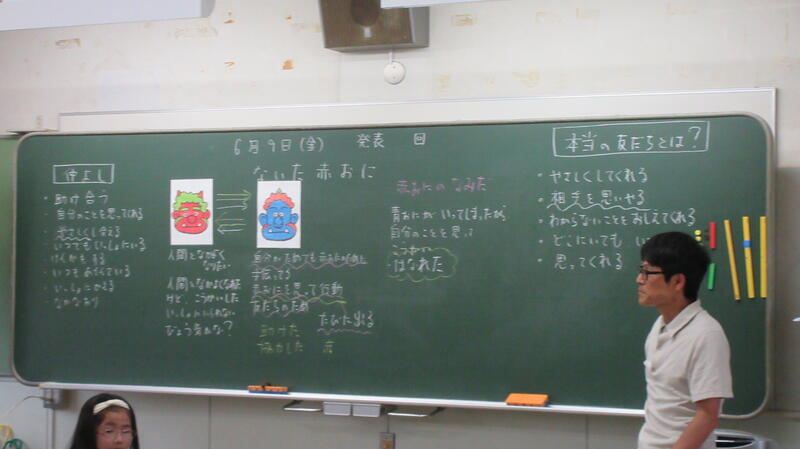 6月9日(金) 発表 回
仲よし
・助け合う
・自分のことを思ってくれる
・やさしくし合える
・いつでもいっしょにいる
・けんかもする
・いつもあそんでいる
・いっしょにかえる
・なかなおり
ないた赤おに
人間となかよく
なりたい
人間となかよくなれた
けど、こうかいした
いっしょにいられない
びょう気かな?
自分がためても赤おにがために
手伝ってる
赤おにを思って行動
友だちのため
たびに出る
助けた
協力した 赤
赤おにのなみだ
青おにがいってしまったから
自分のことを思って
こうかい
はなれた
本当の友だちとは?
・やさしくしてくれる
・相手を思いやる
・わからないことをおしえてくれる
・どこにいても い
・思ってくれる